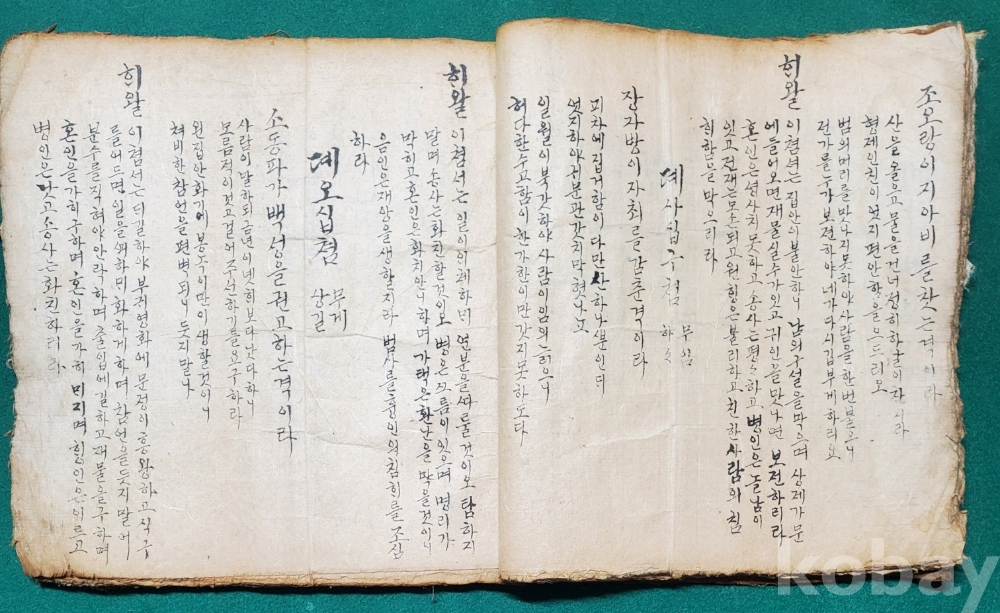 조오랑이지아비를찻는격이라
산을울으고물을건너성히하날의자시라
형제인친이엇지편안함을으드리오
범의머리를만나지못하야사람을한번볼으니
전가를두가보전하야네가다시깁부게하리요
히왈 이첨션는 집안이불안하니 남의구설을막으며 상제가문
에들어오면재물실수가잇고귀인을맛나면 보전하리라
혼인은성사치못하고송사는편 하고 병인은놀남이
잇고전재는모손되고원행은불리하고친한사람의침
히함을막으리라
뎨사십구첨 무심
하
장자방이자최를감춘격이라
피차에집거함이다만산하나뿐인디
엇지하야귀분관갓치막혓나고
일월이북간하야사람이임의늙으니
허다한수고함이한가한이만갓지못하도다
히왈 이첨서는 일이이체하며 연분을싸 둘것이오 탐하지
말며송사는화친할것이오 병은 름이잇으며 명리가
막히고혼인은화치안니하며가택은환난을막을것이니
음인은재앙을생할지라 범사를 인의침히를조심
하라
뎨오십첨 무게
상길
소동파가백성을권고하는격이라
사람이말하되금년이녯히보다낫다하니
모름적이것고걸어주선하기를요구하라
원집안화기에봉녹이만이생할것이니
쳐비한참언을편벽되니듯지말나
히왈 이첨서는더길하야부귀영화에 문정이흥왕하고식구
를어드면일을 하미화하게하며 참언을듯지말어
분수를직혀야안락하며출입에길하고재물을구하며
혼인을가히구하며혼인을가히 미지며행인은이르고
병인은낫고송사는화친하리라
kobay